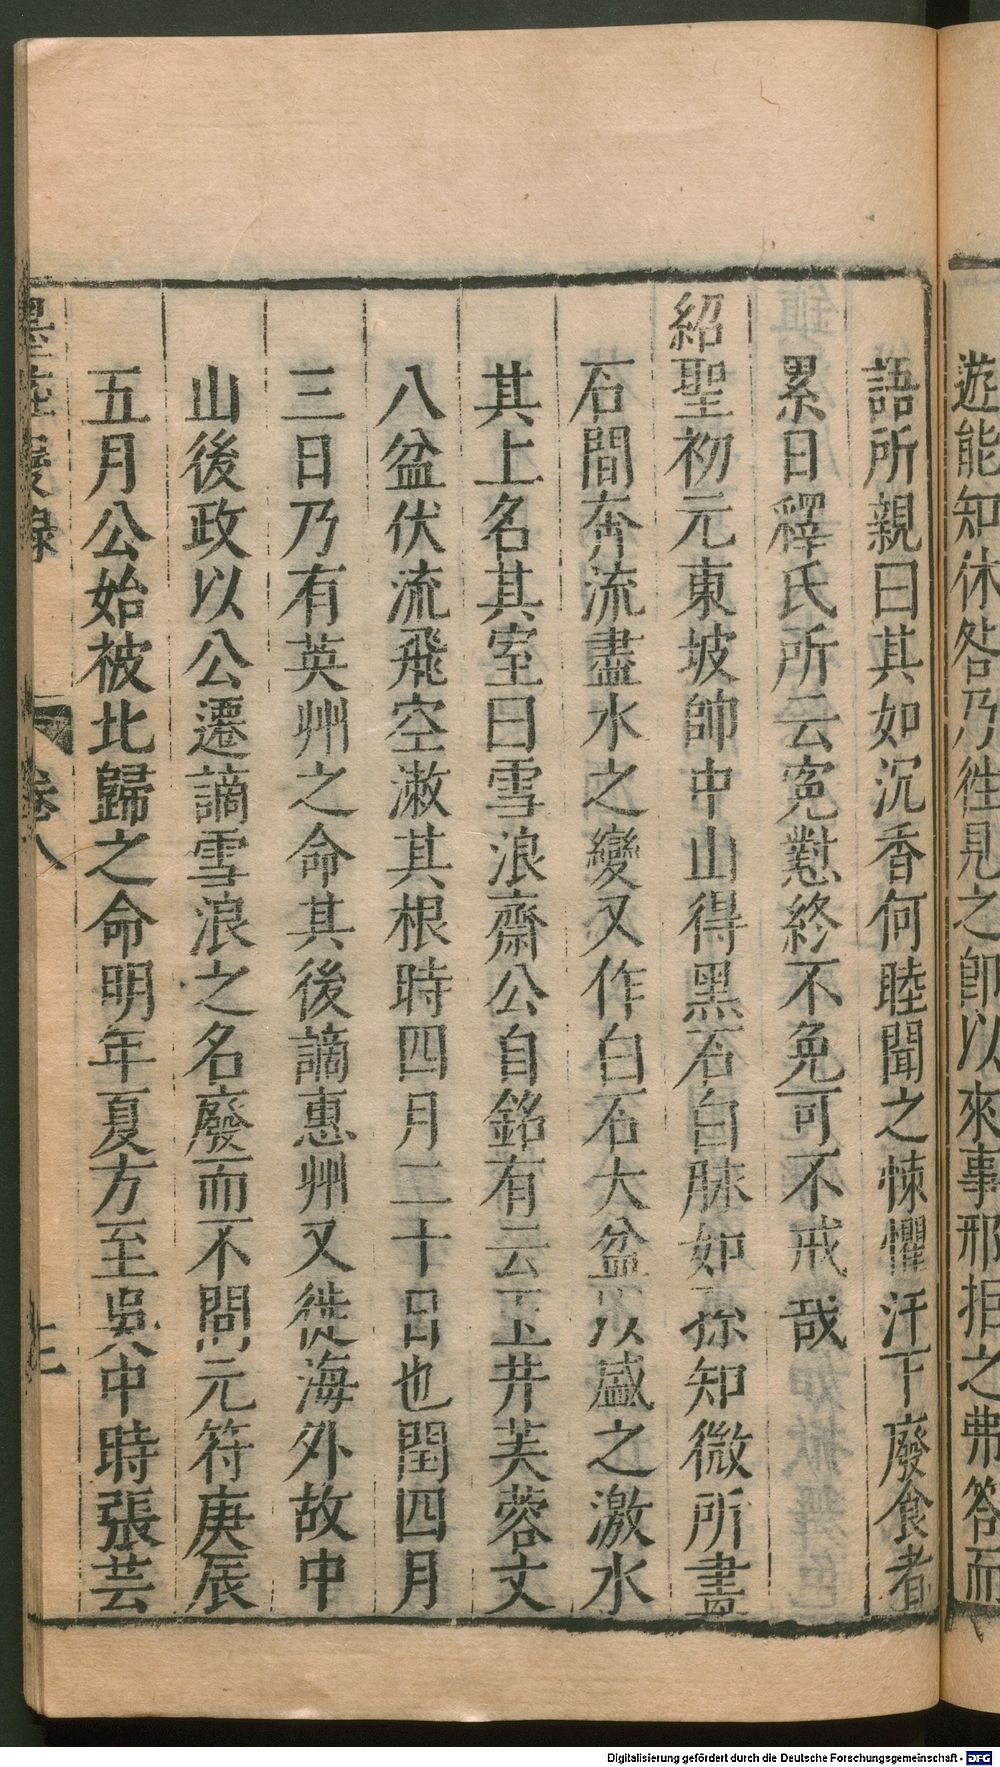 遊能知休咎乃徃見之卽以來事邪拒之弗答而
語所親曰其如沉香何睦聞之悚懼汗下廢食者
累日釋氏所云寃懟終不免可不戒哉
紹聖初元東坡帥中山得黑石白脉如孫知微所畫
石間奔流盡水之變又作白石大盆以盛之激水
其上名其室曰雪浪齋公自銘有云玉井芙蓉文
八盆伏流飛空漱其根時四月二十日也閏四月
三日乃有英州之命其後謫惠州又徙海外故中
山後政以公遷謫雪浪之名廢而不問元符庚辰
五月公始被北歸之命明年夏方至吳中時張芸
墨莊漫錄 卷八
Digitalisierung gefördert durch die Deutsche Forschungsgemeinschaft - DFG